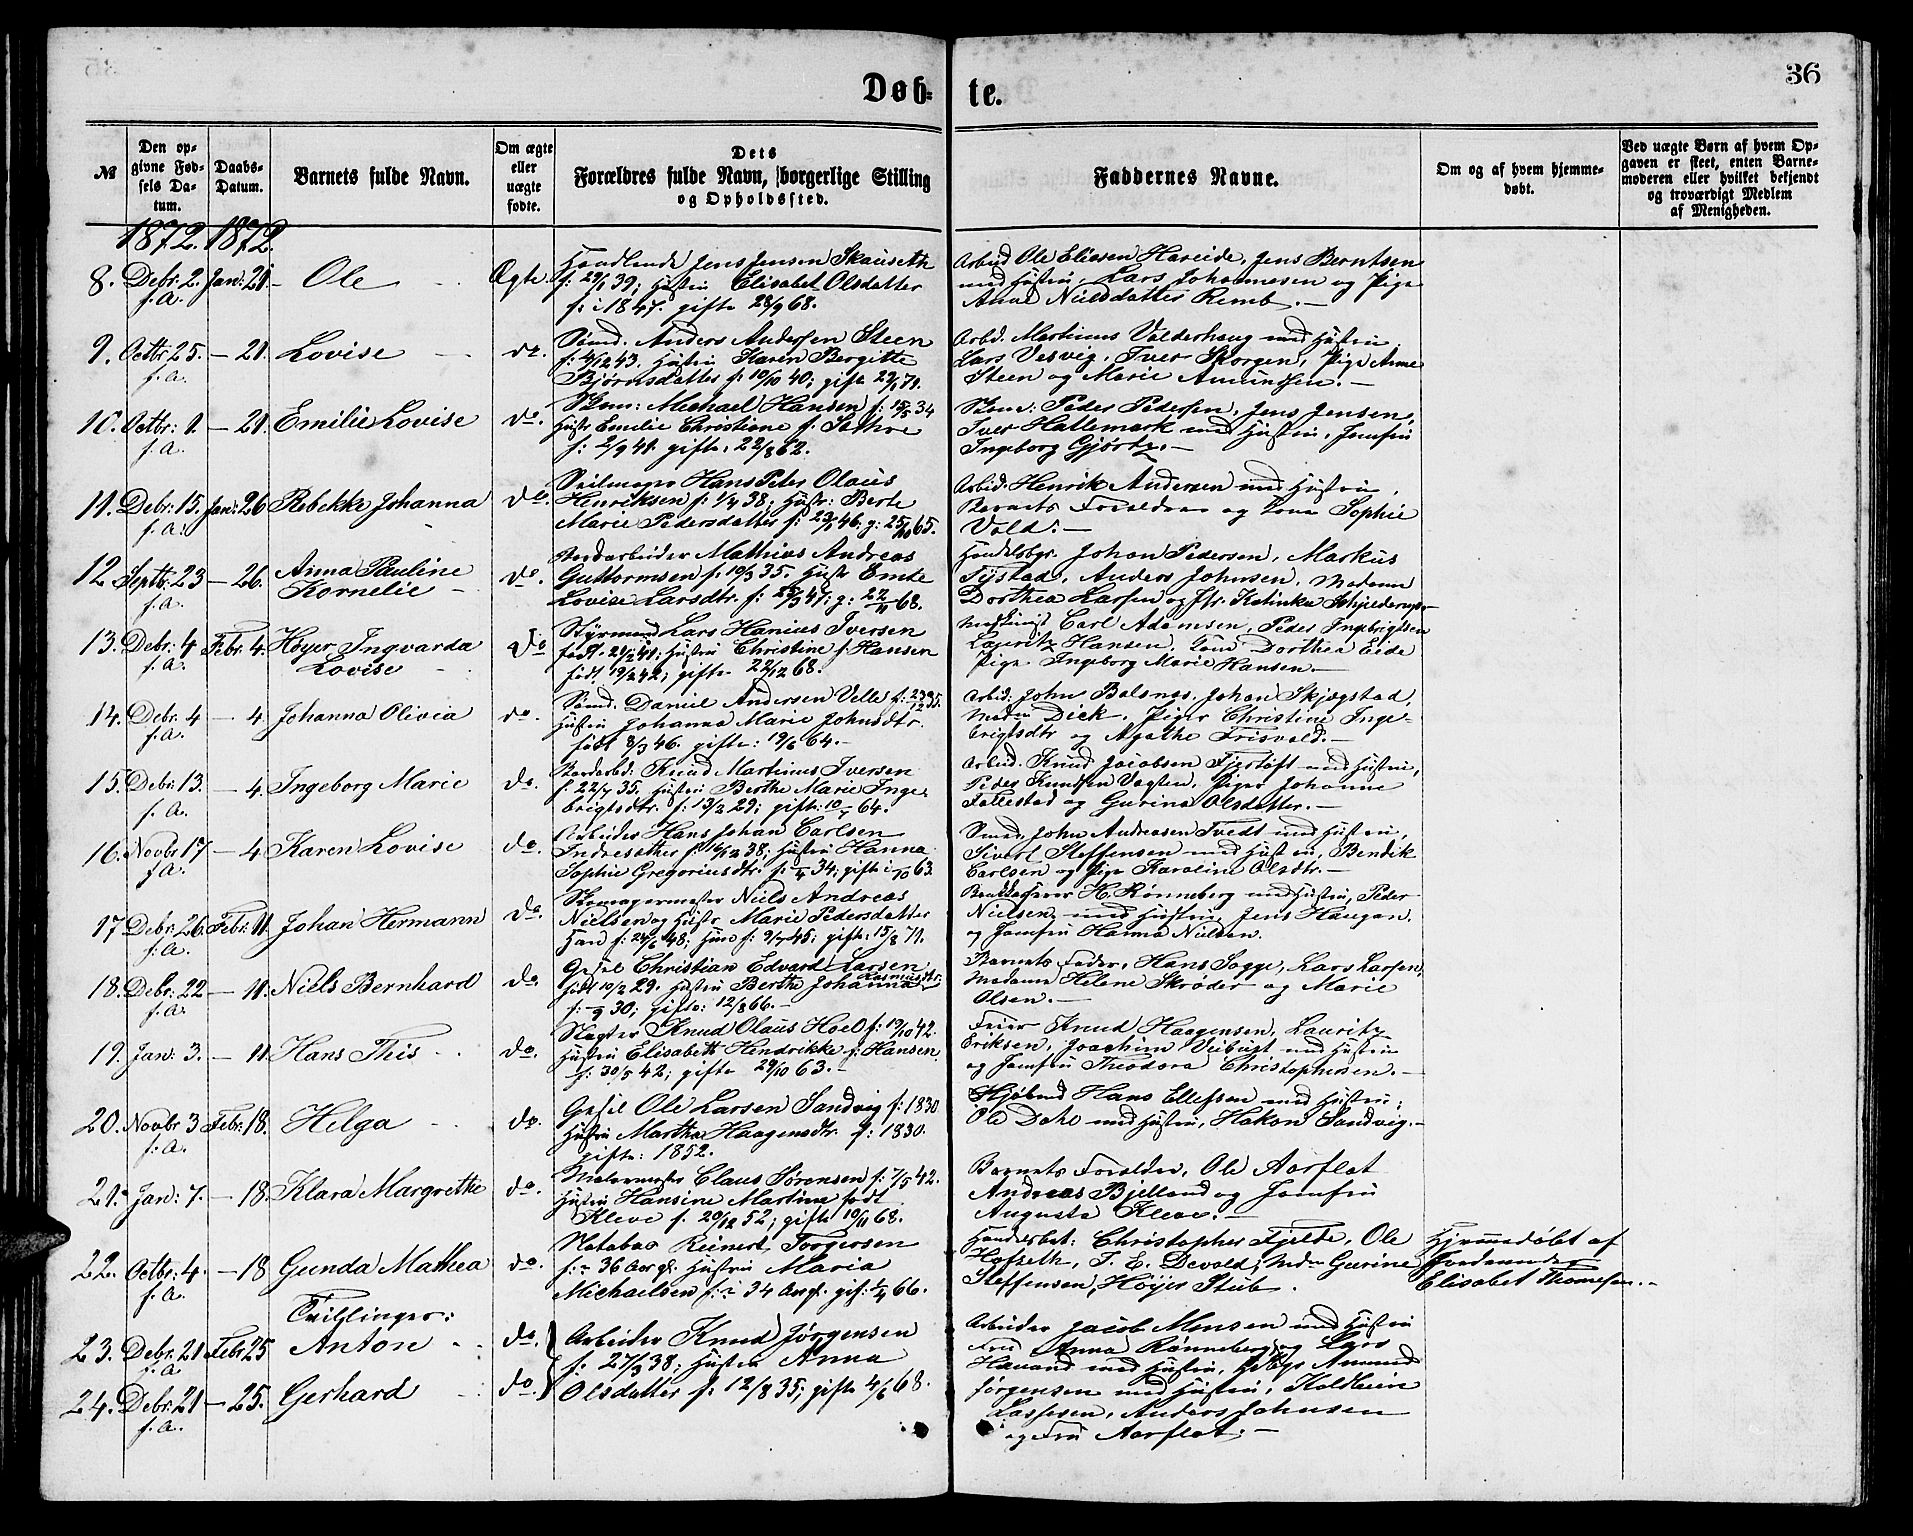 36
Døb- te.
№
Den op-
givne Fød-
sels Da-
tum.
Daabs-
Datum.
Barnets fulde Navn.
Om ægte
eller
uægte
fødte.
Dets
Forældres fulde Navn, borgerlige Stilling
og Opholdssted.
Faddernes Navne.
Om og af hvem hjemme-
døbt.
Ved uægte Børn af hvem Op-
gaven er skeet, enten Barne-
moderen eller hvilket bekjendt
og troværdigt Medlem
af Menigheden.
1872. 1872.
8. Debr. 2. f.a. Jan: 21. Ole Ægte.
Jens Jensen Skauseth
f: 29/1 39; Hustru Elisabet Olsdatter
f: i 1847. gifte 28/9 68.
Arbeid Ole Eliasen Hareide, Jens Berntsen
med Hustru, Lars Johannesen og Pige
Anne Nielsdatter Remb.
9. Octbr. 25. f.a. — 21. Lovise do.
Sømd. Anders Andersen Steen
f: 4/12 43. Hustru Karen Bergitte
Bjørnsdatter f: 10/10 40; gifte 29/1 71.
Arbd. Martinus Valderhaug med Hustru,
Lars Vesvig, Iver Skorgen, Pige Anne
Steen og Marie Amundsen.
10. Octbr: 1. f.a. — 21. Emilie Lovise do.
Skom: Michael Hansen f: 15/5 34
Hustr Emilie Christiane f. Sathre
f: 2/9 41. gifte: 22/8 62.
Skom: Peder Pedersen, Jens Jensen,
Iver Hallemark med Hustru, Jomfru
Ingeborg Gjørtz.
11. Debr: 15. f.a. Jan: 26 Rebekka Johanna do.
Seilmager Hans Peter Olaus
Henriksen f: 1/4 38; Hustr: Berte
Marie Pedersdatter f: 23/1 46. g: 25/10 65.
Arbid. Henrik Andersen med Hustru,
Barnets Forældre og Kone Sophie
Vold.
12 Septbr. 23 f.a. — 26. Anna Pauline
Kornelie do.
Jordarbeider Mathias Andreas
Guttormsen f: 10/3 35. Hustr Emte
Lovise Larsdtr. f: 25/3 41; g: 22/11 68.
Handelsbgr. Johan Pedersen, Markus
Tystad, Anders Johnsen, Madame
Dorthea Larsen og Fr. Katinka Schjelderup.
13. Debr: 4 f.a. Febr. 4. Høyer Ingvarda
Lovise do
Styrmand Lars Hanius Iversen
født. 21/2 41; Hustru Christine f: Hansen
født 19/2 42; gifte 22/12 68.
Carl Adamsen, Peder Ingebrigtsen
Lauritz Hansen, Kone Dorthea Eide
Pige Ingeborg Marie Hansen.
14. Debr: 4 f.a. — 4. Johanna Olivia do.
Sømd. Daniel Andersen Velle f: 23/12 35.
Hustru Johanna Marie Johnsdtr.
født 8/3 46. gifte: 19/6 64.
Arbid. John Balsnes, Johan Skjegstad,
Madm Dick. Piger Christine Inge-
brigtsdtr og Agathe Frisvold.
15. Debr: 13. f.a. — 4. Ingeborg Marie do.
Bordarbd: Knud Martinus Iversen
f. 22/7 35. Hustru Berthe Marie Inge-
brigtsdtr. f: 13/2 29; gifte: 10/7 64.
Arbeid. Knud Jacobsen Fjørtoft med Hustru,
Peder Knudsen Vagsten, Piger Johanne
Fallestad og Gurina Olsdatter.
16. Novbr 17 f.a. — 4. Karen Lovise do.
Arbeider Hans Johan Carlsen
Indresæther f: 16/12 38; Hustru Hanna
Sophie Gregoriusdtr. f: 34; gifte: i 10 63.
Smed, John Andreasen Tvedt med Hustru,
Sivert Steffensen med Hustru, Bendik
Carlsen og Pige Karoline Olsdtr.
17 Debr. 26. f.a. Febr. 11. Johan Hermann do.
Skomagermester Niels Andreas
Nielsen og Hustr Marie Pedersdatter
Han f: 24/6 48; Hun f: 9/7 45; gifte: 15/8 71.
H. Rønneberg med Hustru, Peder
Nielsen med Hustru, Jens Haugan,
og Jomfru Hanna Nielsen.
18. Debr. 22 f.a. — 11. Niels Bernhard do.
Gesil Christian Edvard Larsen
født 10/2 29. Hustru Berthe Johanna Rasmusdtr.
f: 30; gifte: 12/8 66.
Barnets Fader, Hans Sogge, Lars Larsen,
Madame Helene Skrøder og Marie
Olsen.
19. Jan: 3. — 11. Hans This do.
Slagter Knud Olaus Hoel f: 19/10 42.
Hustru Elisabeth Hendrikke f: Hansen
f: 30/5 42; gifte 29/10 63.
Feier Knud Haagensen, Lauritz
Eriksen, Joachim Veibust med Hustru
og Jomfru Theodora Christophersen.
20. Novbr 3 f.a. Febr: 18. Helga do.
Gesil Ole Larsen Sandvig f: 1830.
Hustru Martha Haagensdtr. f: 1830.
gifte: 1852.
Hans Ellefsen med Hustru;
Ole Dahl med Hustru, Hakon Sandvig.
21. Jan: 7. — 18. Klara Margrethe do.
Malermester Claus Sørensen f: 7/5 42.
Hustru Hansine Martine født
Kleve f. 20/12 52; gifte 10/11 68.
Barnets Forældre, Ole Aarflot
Andreas Bjelland og Jomfru
Augusta Kleve.
22. Octbr: 4. f.a. — 18 Gunda Mathea do.
Reinert Torgersen
f: i 36 Aar gl. Hustru Maria
Michaelsen f: i 34 Aar gl. gif: 1/4 66.
Handelsbet: Christopher Fjelde, Ole
Hofseth, T. E. Devold, Mdm Gurine
Steffensen, Høyer Stub.
Hjemmedøbt af
Jordemoder
Elisabet Thomesen.
Tvillinger:
23. Debr. 21 f.a. Febr 25 Anton do
24. Debr: 21 f.a. — 25. Gerhard do
Arbeider Knud Jørgensen
f: 27/3 38; Hustru Anna
Olsdatter f: 12/8 35; gifte 4/6 68.
Arbeider Jacob Monsen med Hustru
Anna Rønneberg og Lars
Havand med Hustru, Amund
Jørgensen med Hustru, Koldbein
Lassesen, Anders Johnsen
og Fru Aarflot.